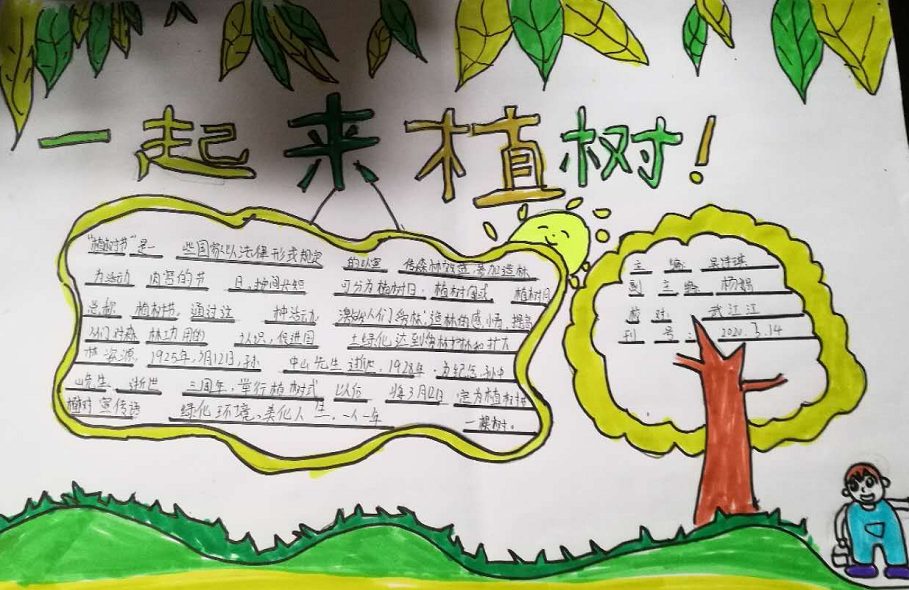 一起来植树！
"植树节"是一些国家以法律形式规定的以宣传森林效益，参加造林
为活动内容的节日。按时间长短可分为植树日、植树周或植树月
总称植树节。通过这种活动，激发人们爱林、造林的感情，提高
人们对森林功用的认识，促进国土绿化，达到爱林护林和扩大
林资源。1925年3月12日，孙中山先生逝世，1928年，为纪念孙中
山先生逝世三周年，举行植树式以后将3月12日定为植树节
植树宣传语 绿化环境、美化人生。一人一年一棵树。
主编 吴诗琪
副主编 杨
校对 武江江
刊号：2020.3.14